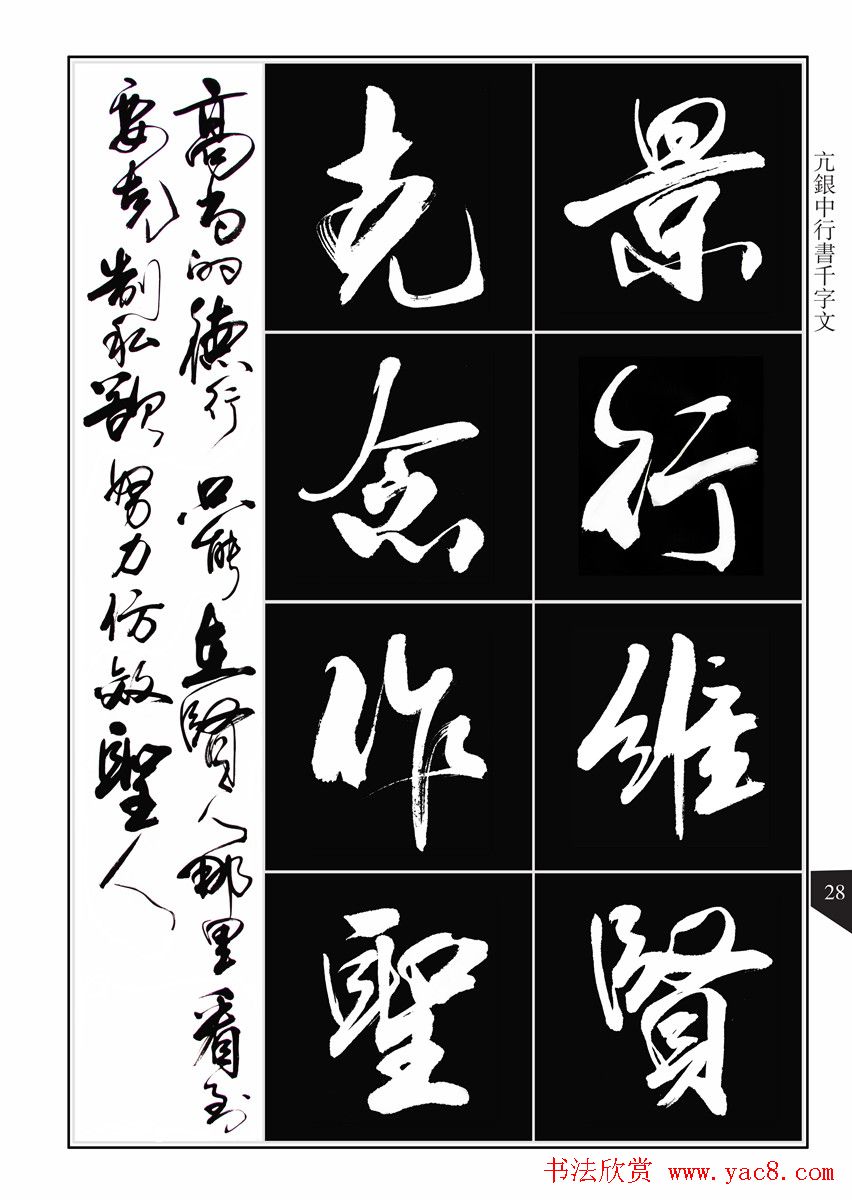 亢銀中行書千字文
景行維賢
克念作聖
高尚的德行只能在賢人那里看到
要克制私欲努力仿效聖人
28
书法欣赏 www.yac8.com